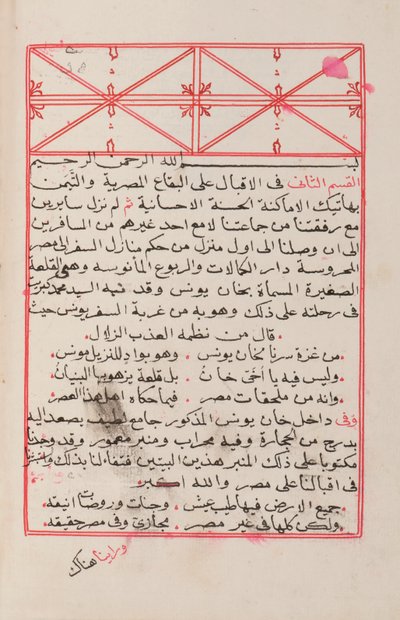 بسم الله الرحمن الرحيم
القسم الثانى فى الاقبال على البقاع المصرية والتيمن
بهاتيك الاماكنة الحسنة الاحسانية ثم لم نزل سايرين
مع رفقتنا من جماعتنا لا مع احد غيرهم من المسافرين
الى ان وصلنا الى اول منزل من حكم منازل السفر الى مصر
المحروسة دار الكمالات والربوع المأنوسه وهى القلعة
الصغيرة المسماة بخان يونس وقد نبه السيد محمد كبريت
فى رحلته على ذلك وهو به من غربة السفر يونس حيث
قال من نظمه العذب الزلال
من غزة سرنا لخان يونس . وهو بواد للنزيل مونس
وليس فيه يا أخى خان . بل قلعة يزهو بها البنيان
وانه من ملحقات مصر . فيما حكاه اهل هذا العصر
وفى داخل خان يونس المذكور جامع يصعد اليه
بدرج من الحجارة وفيه محراب ومنبر معمور وقد وجدنا
مكتوبا على ذلك المنبر هذين البيتين فتفاءلنا بذلك
فى اقبالنا على مصر والله اكبر
جميع الارض فيها طيب عيش . وجنات وروضات انيقه
ولكن كلها فى غير مصر . مجازى وفى مصر حقيقه
وراينا هناك